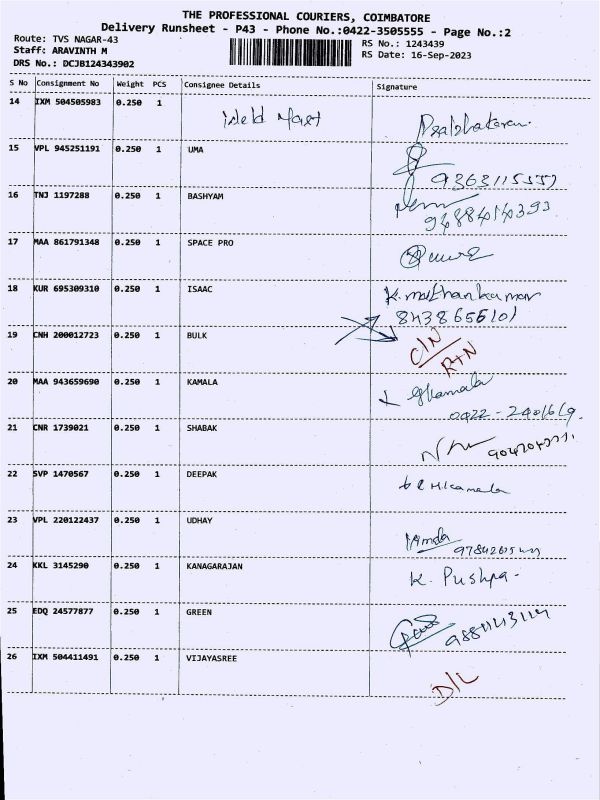 THE PROFESSIONAL COURIERS, COIMBATORE
Delivery Runsheet - P43 - Phone No.:0422-3505555 - Page No.:2
Route: TVS NAGAR-43
Staff: ARAVINTH M
DRS No.: DCJB124343902
RS No.: 1243439
RS Date: 16-Sep-2023
S No Consignment No Weight PCS Consignee Details Signature
14 IXM 504505983 0.250 1
15 VPL 945251191 0.250 1 UMA
16 TNJ 1197288 0.250 1 BASHYAM
17 MAA 861791348 0.250 1 SPACE PRO
18 KUR 695309310 0.250 1 ISAAC K.mathankumar
8438655101
19 CNH 200012723 0.250 1 BULK C/N
R+N
20 MAA 943659690 0.250 1 KAMALA
0422-2401619.
21 CNR 1739021 0.250 1 SHABAK
22 SVP 1470567 0.250 1 DEEPAK
23 VPL 220122437 0.250 1 UDHAY
24 KKL 3145290 0.250 1 KANAGARAJAN K. Pushpa-
25 EDQ 24577877 0.250 1 GREEN
26 IXM 504411491 0.250 1 VIJAYASREE D/L